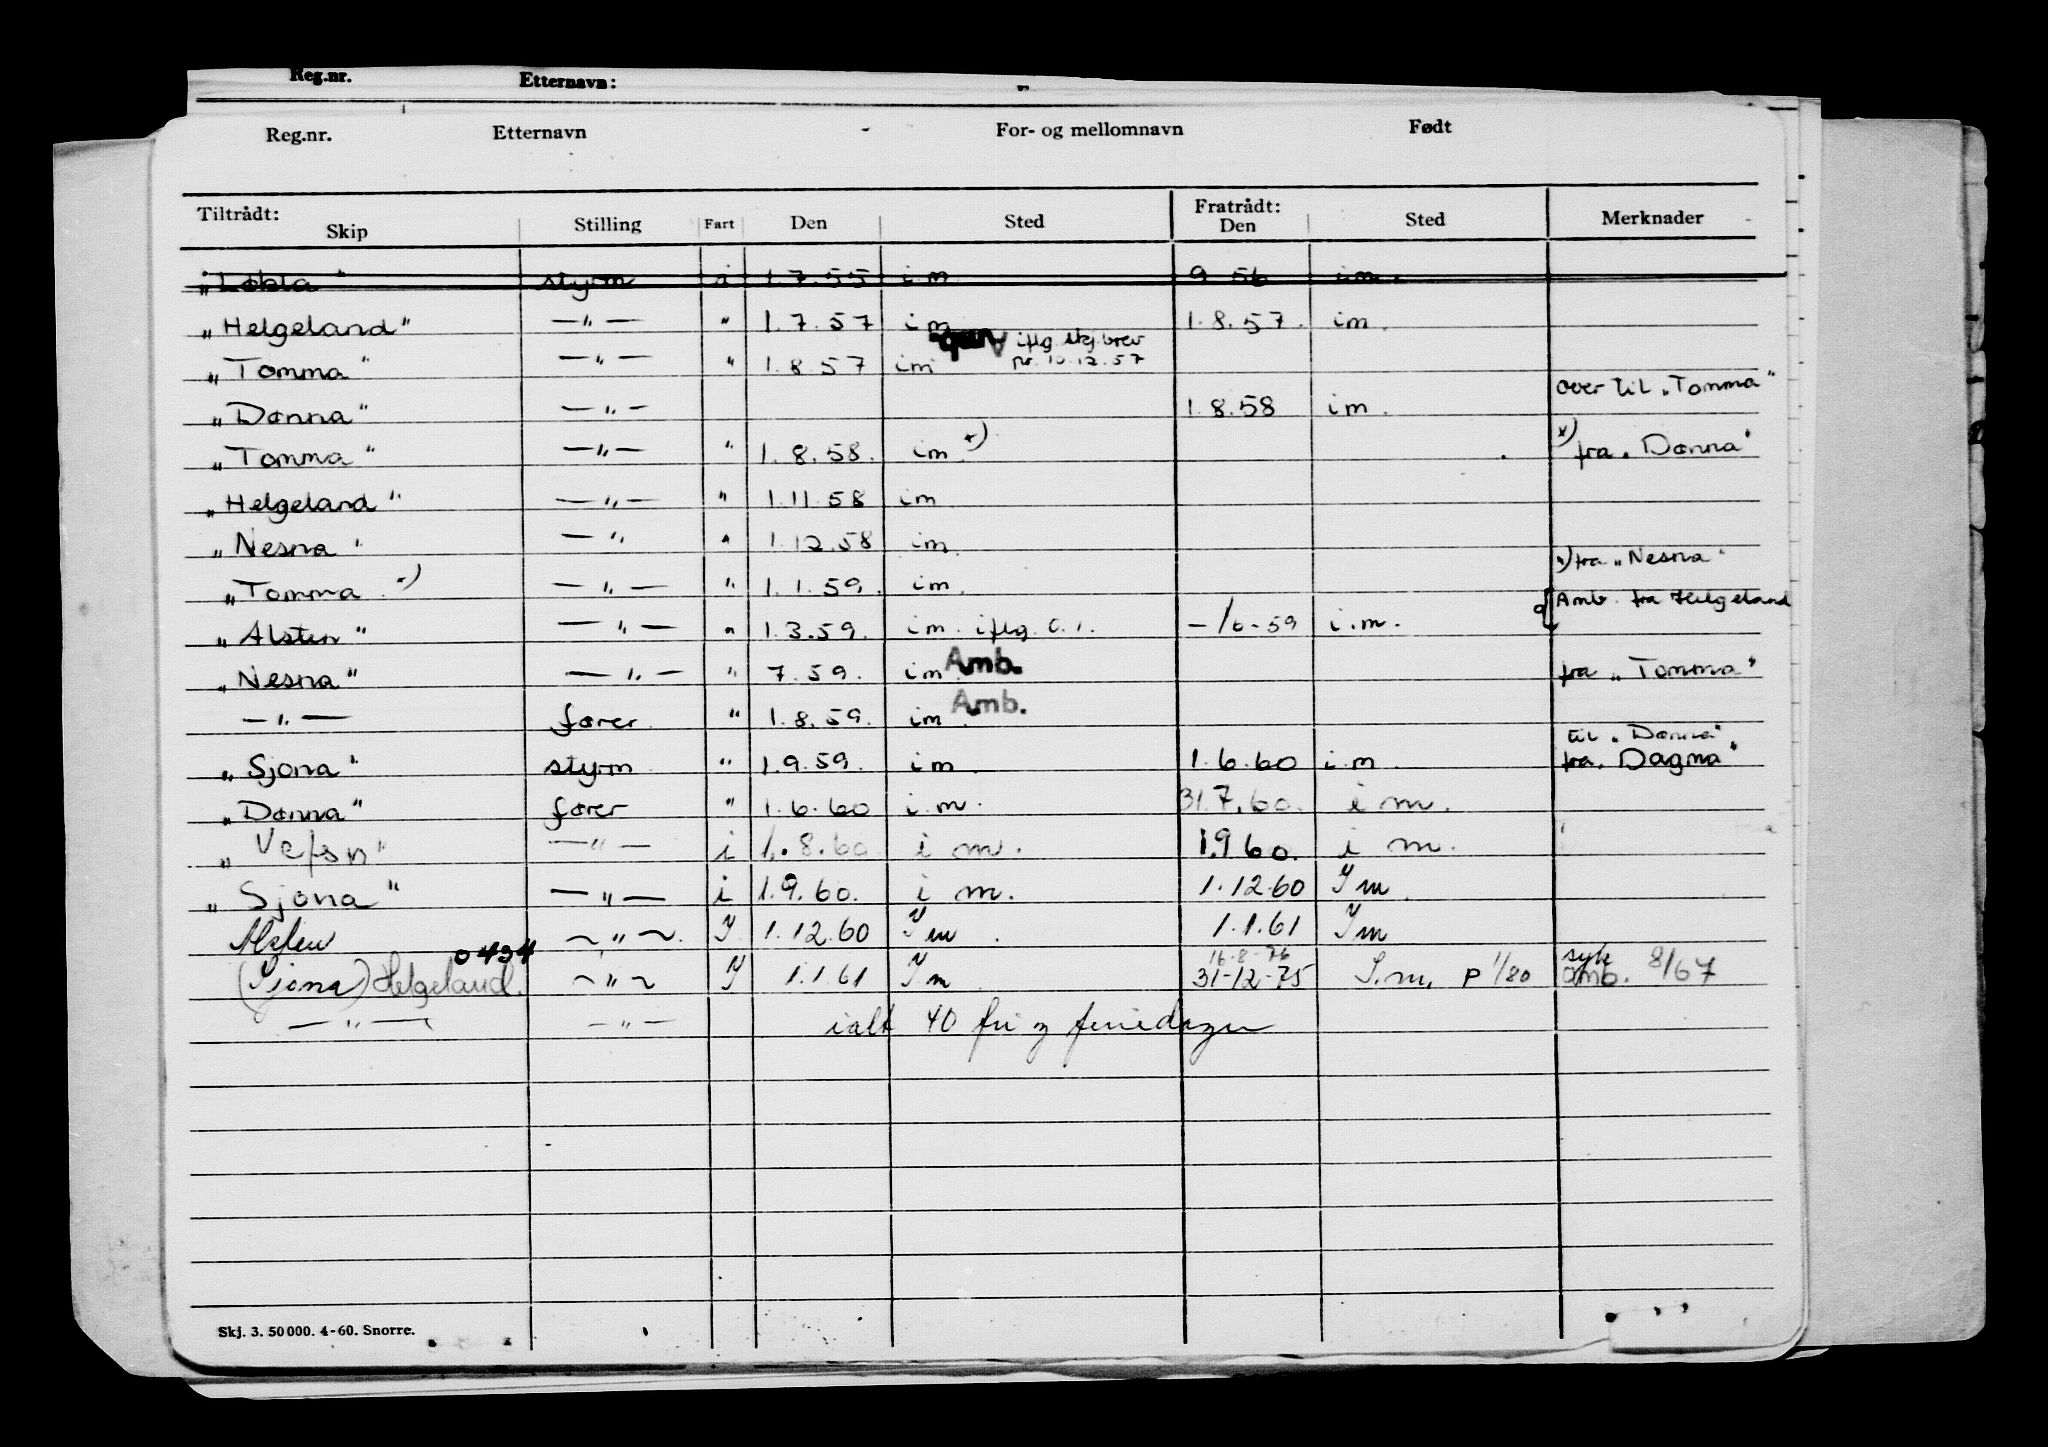 Reg.nr. Etternavn:
Reg.nr. Etternavn For- og mellomnavn Født
Tiltrådt: Skip Stilling Fart Den Sted Fratrådt: Den Sted Merknader
styrm i 1.7.55 i.m 9 56 i.m.
"Helgeland" —"— " 1.7.57 i m 1.8.57. im.
iflg. skj.brev
"Tomma" —"— " 1.8.57 im nr. 10.12.57
over til "Tomma"
"Dønna" —"— 1.8.58 im.
"Tomma" —"— " 1.8.58. im. x) x) fra "Dønna"
"Helgeland" —"— " 1.11.58 im
"Nesna" —" " 1.12.58 im.
x) fra "Nesna"
"Tomma x) —"— " 1.1.59. im.
Amb. fra Helgeland
"Alsten" —"— " 1.3.59. im. iflg. o.i. -/6-59 i.m.
"Nesna" —"— " 7.59. im Amb. fra "Tomma"
—"— fører " 1.8.59. im. Amb.
til "Dønna"
"Sjona" styrm " 1.9.59. im 1.6.60 i m fra "Dagma"
"Dønna" fører " 1.6.60 i.m. 31.7.60. i m.
"Vefsn" —"— i 1.8.60 i m. 1.9.60. i m.
"Sjona" —"— i 1.9.60. i m. 1.12.60 I m.
Alsten ~"~ I 1.12.60 I m. 1.1.61 I m
0434 16.8-76 syk
(Sjona) Helgeland. ~"~ I 1.1.61 I m. 31-12-75 I.m. P 1/80 amb. 8/67
—"— —"— ialt 40 fri og feriedager
Skj. 3. 50 000. 4-60. Snorre.